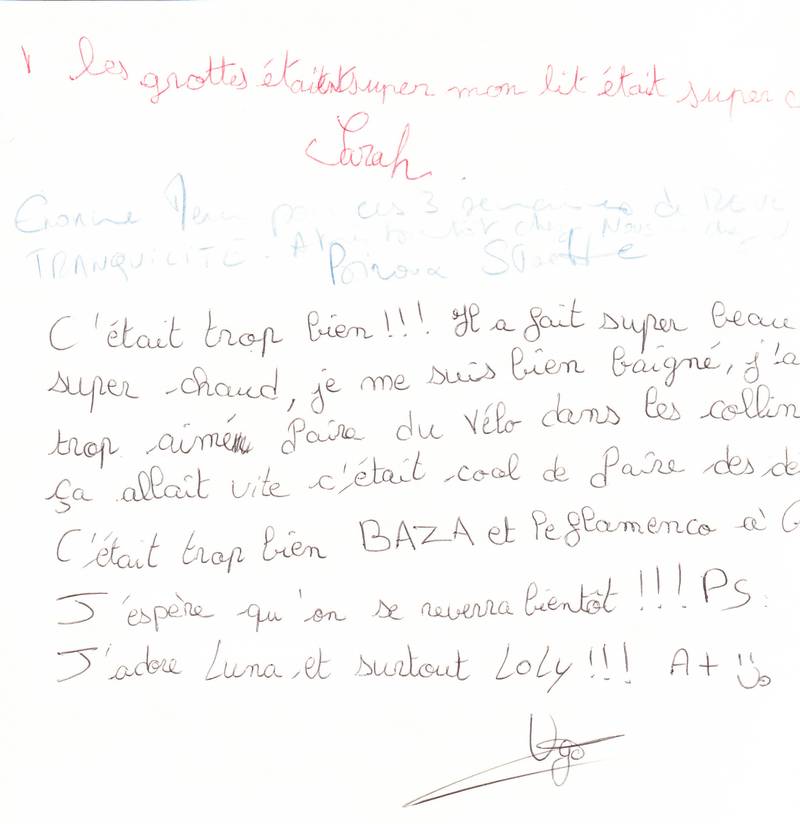 les grottes étaient super mon lit était super c
Sarah
ces 3 semaines de REVE
TRANQUILITÉ. A bientôt chez Nous
C'était trop bien!!! Il a fait super beau
super chaud, je me suis bien baigné, j'a
trop aimé faire du vélo dans les collin
ça allait vite c'était cool de faire des de
C'était trop bien BAZA et le flamenco à G
J'espère qu'on se reverra bientôt !!! PS:
J'adore Luna et surtout LOLY!!! A+
Ugo